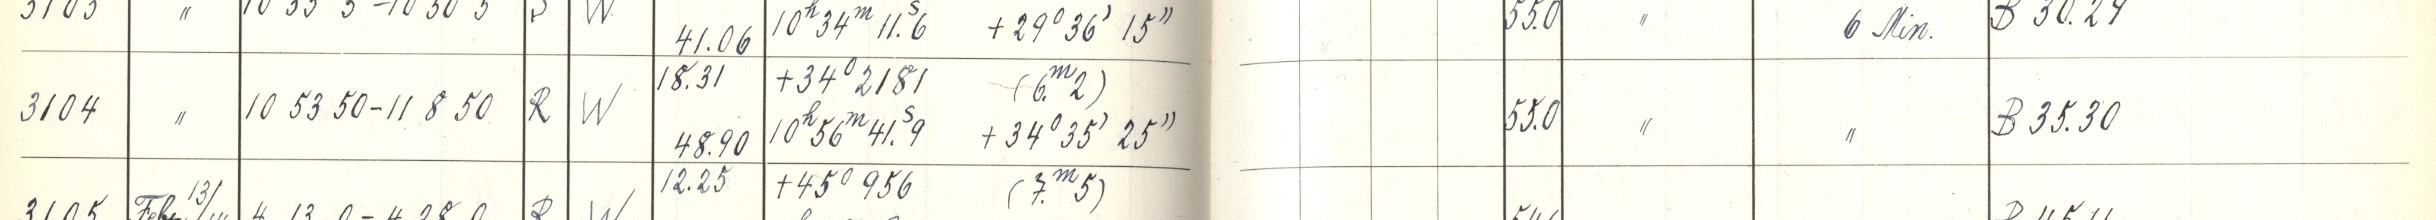 3103 " 10 35 5-10 50 5 W 55.0 " 6 Min. B 30.29
41.06 10h 34m 11.s6 +29° 36' 15"
18.31 +34° 2181 (6.m2)
3104 " 10 53 50-11 8 50 R W 55.0 " " B 35.30
48.90 10h 56m 41.s9 +34° 35' 25"
12.25 +45° 956 (7.m5)
3105 Febr. 13/ 4 13 0-4 28 0 R W